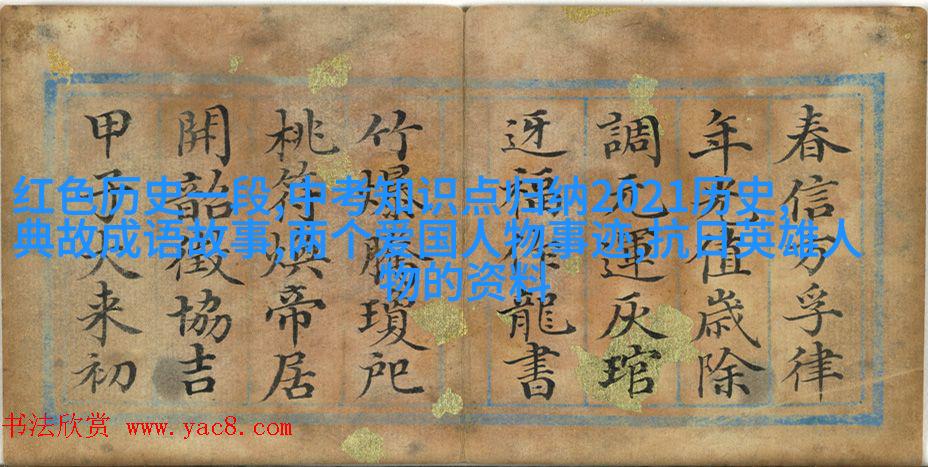 春信方孚律
年芳值歲除
調元運灰琯
迓福作龍書
竹爆騰瓊
桃符煥帝居
開韶徵協吉
甲子來初
红色历史一段,中考知识点归纳2021历史,
典故成语故事,两个爱国人物事迹,抗日英雄人
物的资料
书法欣赏 www.yac8.com